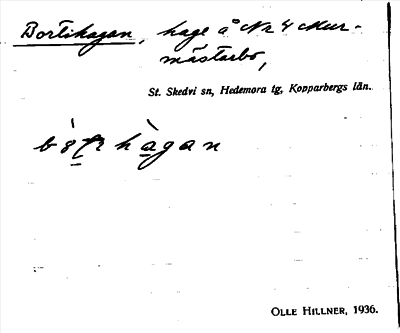 Bortihagan, hage å Nr 4 Mur-
mästarbo,
St. Skedvi sn, Hedemora tg, Kopparbergs län.
hàgan
OLLE HILLNER, 1936.